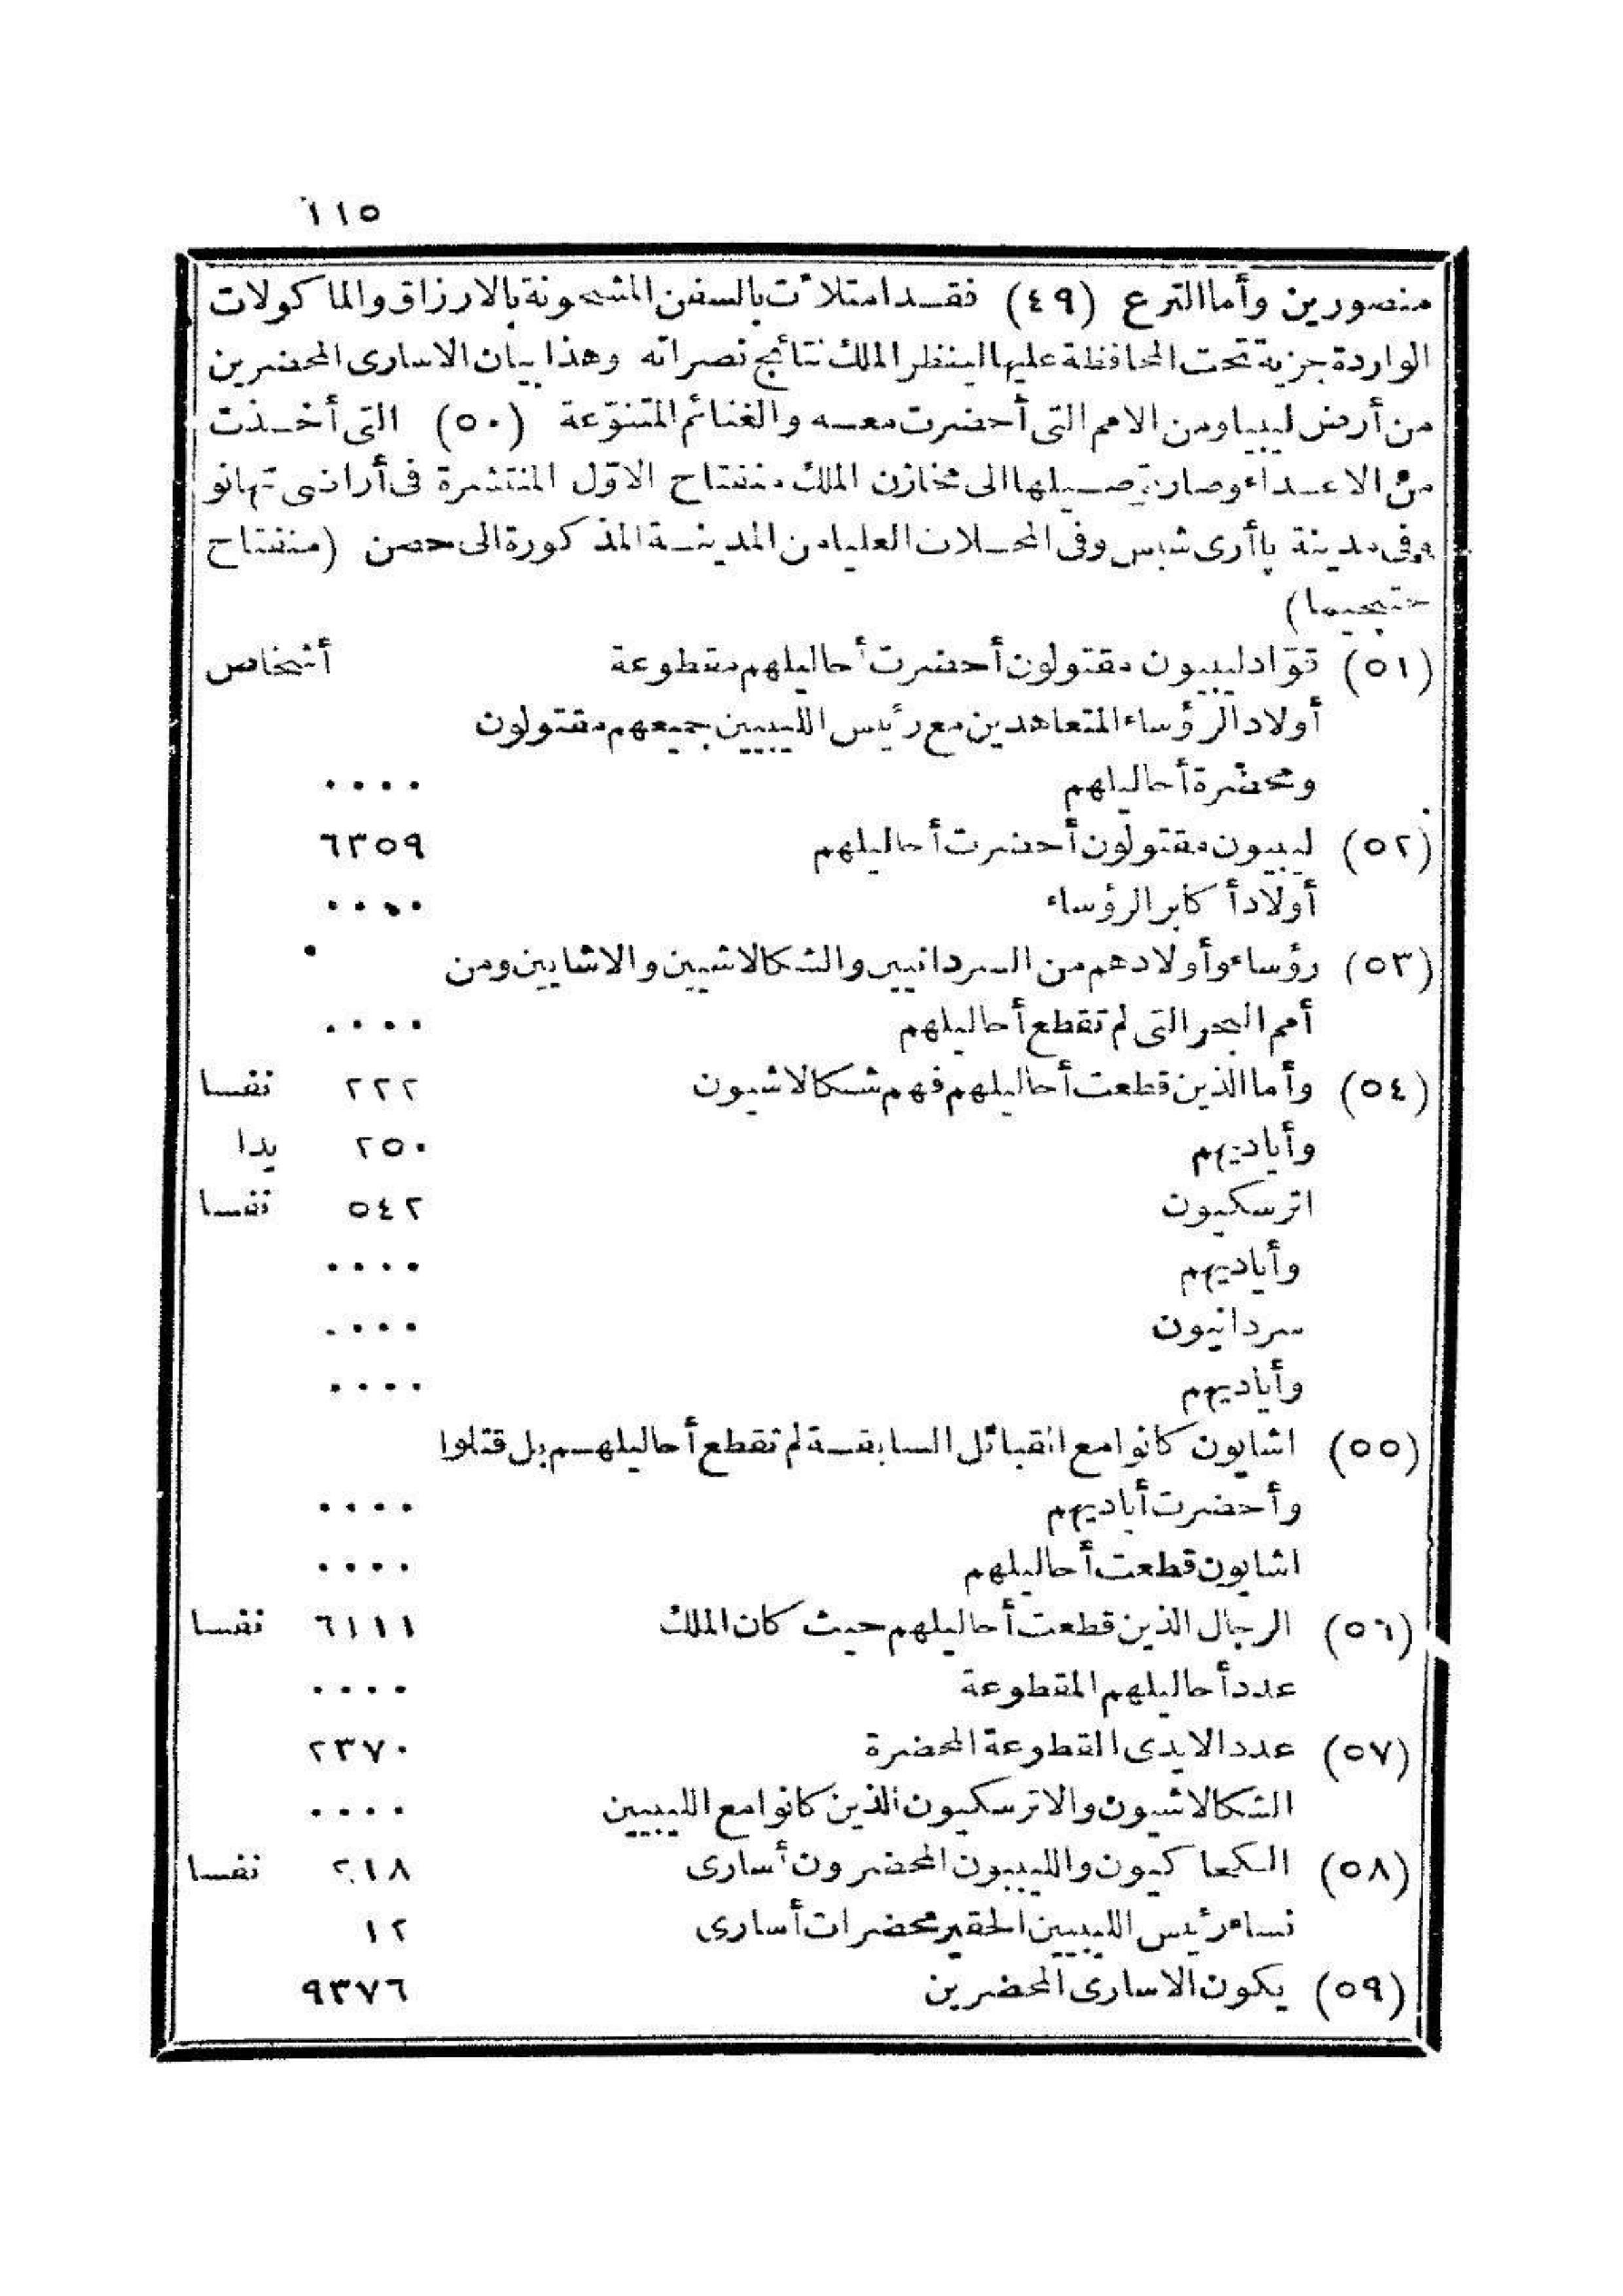 ١١٥
منصورين وأما الترع (٤٩) فقد امتلأت بالسفن المشحونة بالارزاق والماكولات
الواردة جزية تحت المحافظة عليها لينظر الملك نتائج نصراته وهذا بيان الاسارى المحضرين
من أرض ليبيا ومن الامم التى أحضرت معه والغنائم المتنوّعة (٥٠) التى أخذت
من الاعداء وصار توصيلها الى مخازن الملك منفتاح الاوّل المنتشرة فى أراضى تهانو
وفى مدينة پاأرى شپس وفى المحلات العليا من المدينة المذكورة الى حصن (منفتاح
حتپحيما)
(٥١) قوّاد ليبيون مقتولون أحضرت أحاليلهم مقطوعة أشخاص
أولاد الرؤساء المتعاهدين مع رئيس الليبيين جميعهم مقتولون
ومحضرة أحاليلهم ٠٠٠٠
(٥٢) ليبيون مقتولون أحضرت أحاليلهم ٦٣٥٩
أولاد أكابر الرؤساء ٠٠٠٠
(٥٣) رؤساء وأولادهم من السردانيين والشكالاشيين والاشايين ومن
أمم البحر التى لم تقطع أحاليلهم ٠٠٠٠
(٥٤) وأما الذين قطعت أحاليلهم فهم شكالاشيون ٢٢٢ نفسا
وأياديهم ٢٥٠ يدا
اترسكيون ٥٤٢ نفسا
وأياديهم ٠٠٠٠
سردانيون ٠٠٠٠
وأياديهم ٠٠٠٠
(٥٥) اشايون كانوا مع القبائل السابقة لم تقطع أحاليلهم بل قتلوا
وأحضرت أياديهم ٠٠٠٠
اشايون قطعت أحاليلهم ٠٠٠٠
(٥٦) الرجال الذين قطعت أحاليلهم حيث كان الملك ٦١١١ نفسا
عدد أحاليلهم المقطوعة ٠٠٠٠
(٥٧) عدد الايدى المقطوعة المحضرة ٢٣٧٠
الشكالاشيون والاترسكيون الذين كانوا مع الليبيين ٠٠٠٠
(٥٨) الكهاكيون والليبيون المحضرون أسارى ٢١٨ نفسا
نساء رئيس الليبيين الحقير محضرات أسارى ١٢
(٥٩) يكون الاسارى المحضرين ٩٣٧٦